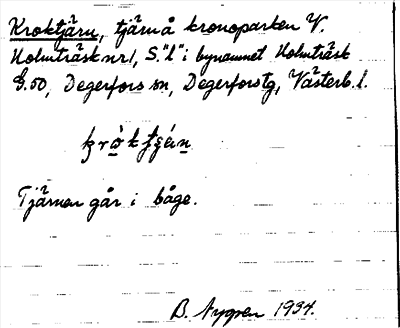 Kroktjärn, tjärn å kronoparken V.
Holmträsk nr 1, S."l" i bynamnet Holmträsk
G.50, Degerfors sn, Degerforstg, Västerb. l.
Tjärnen går i båge.
B. Nygren 1934.